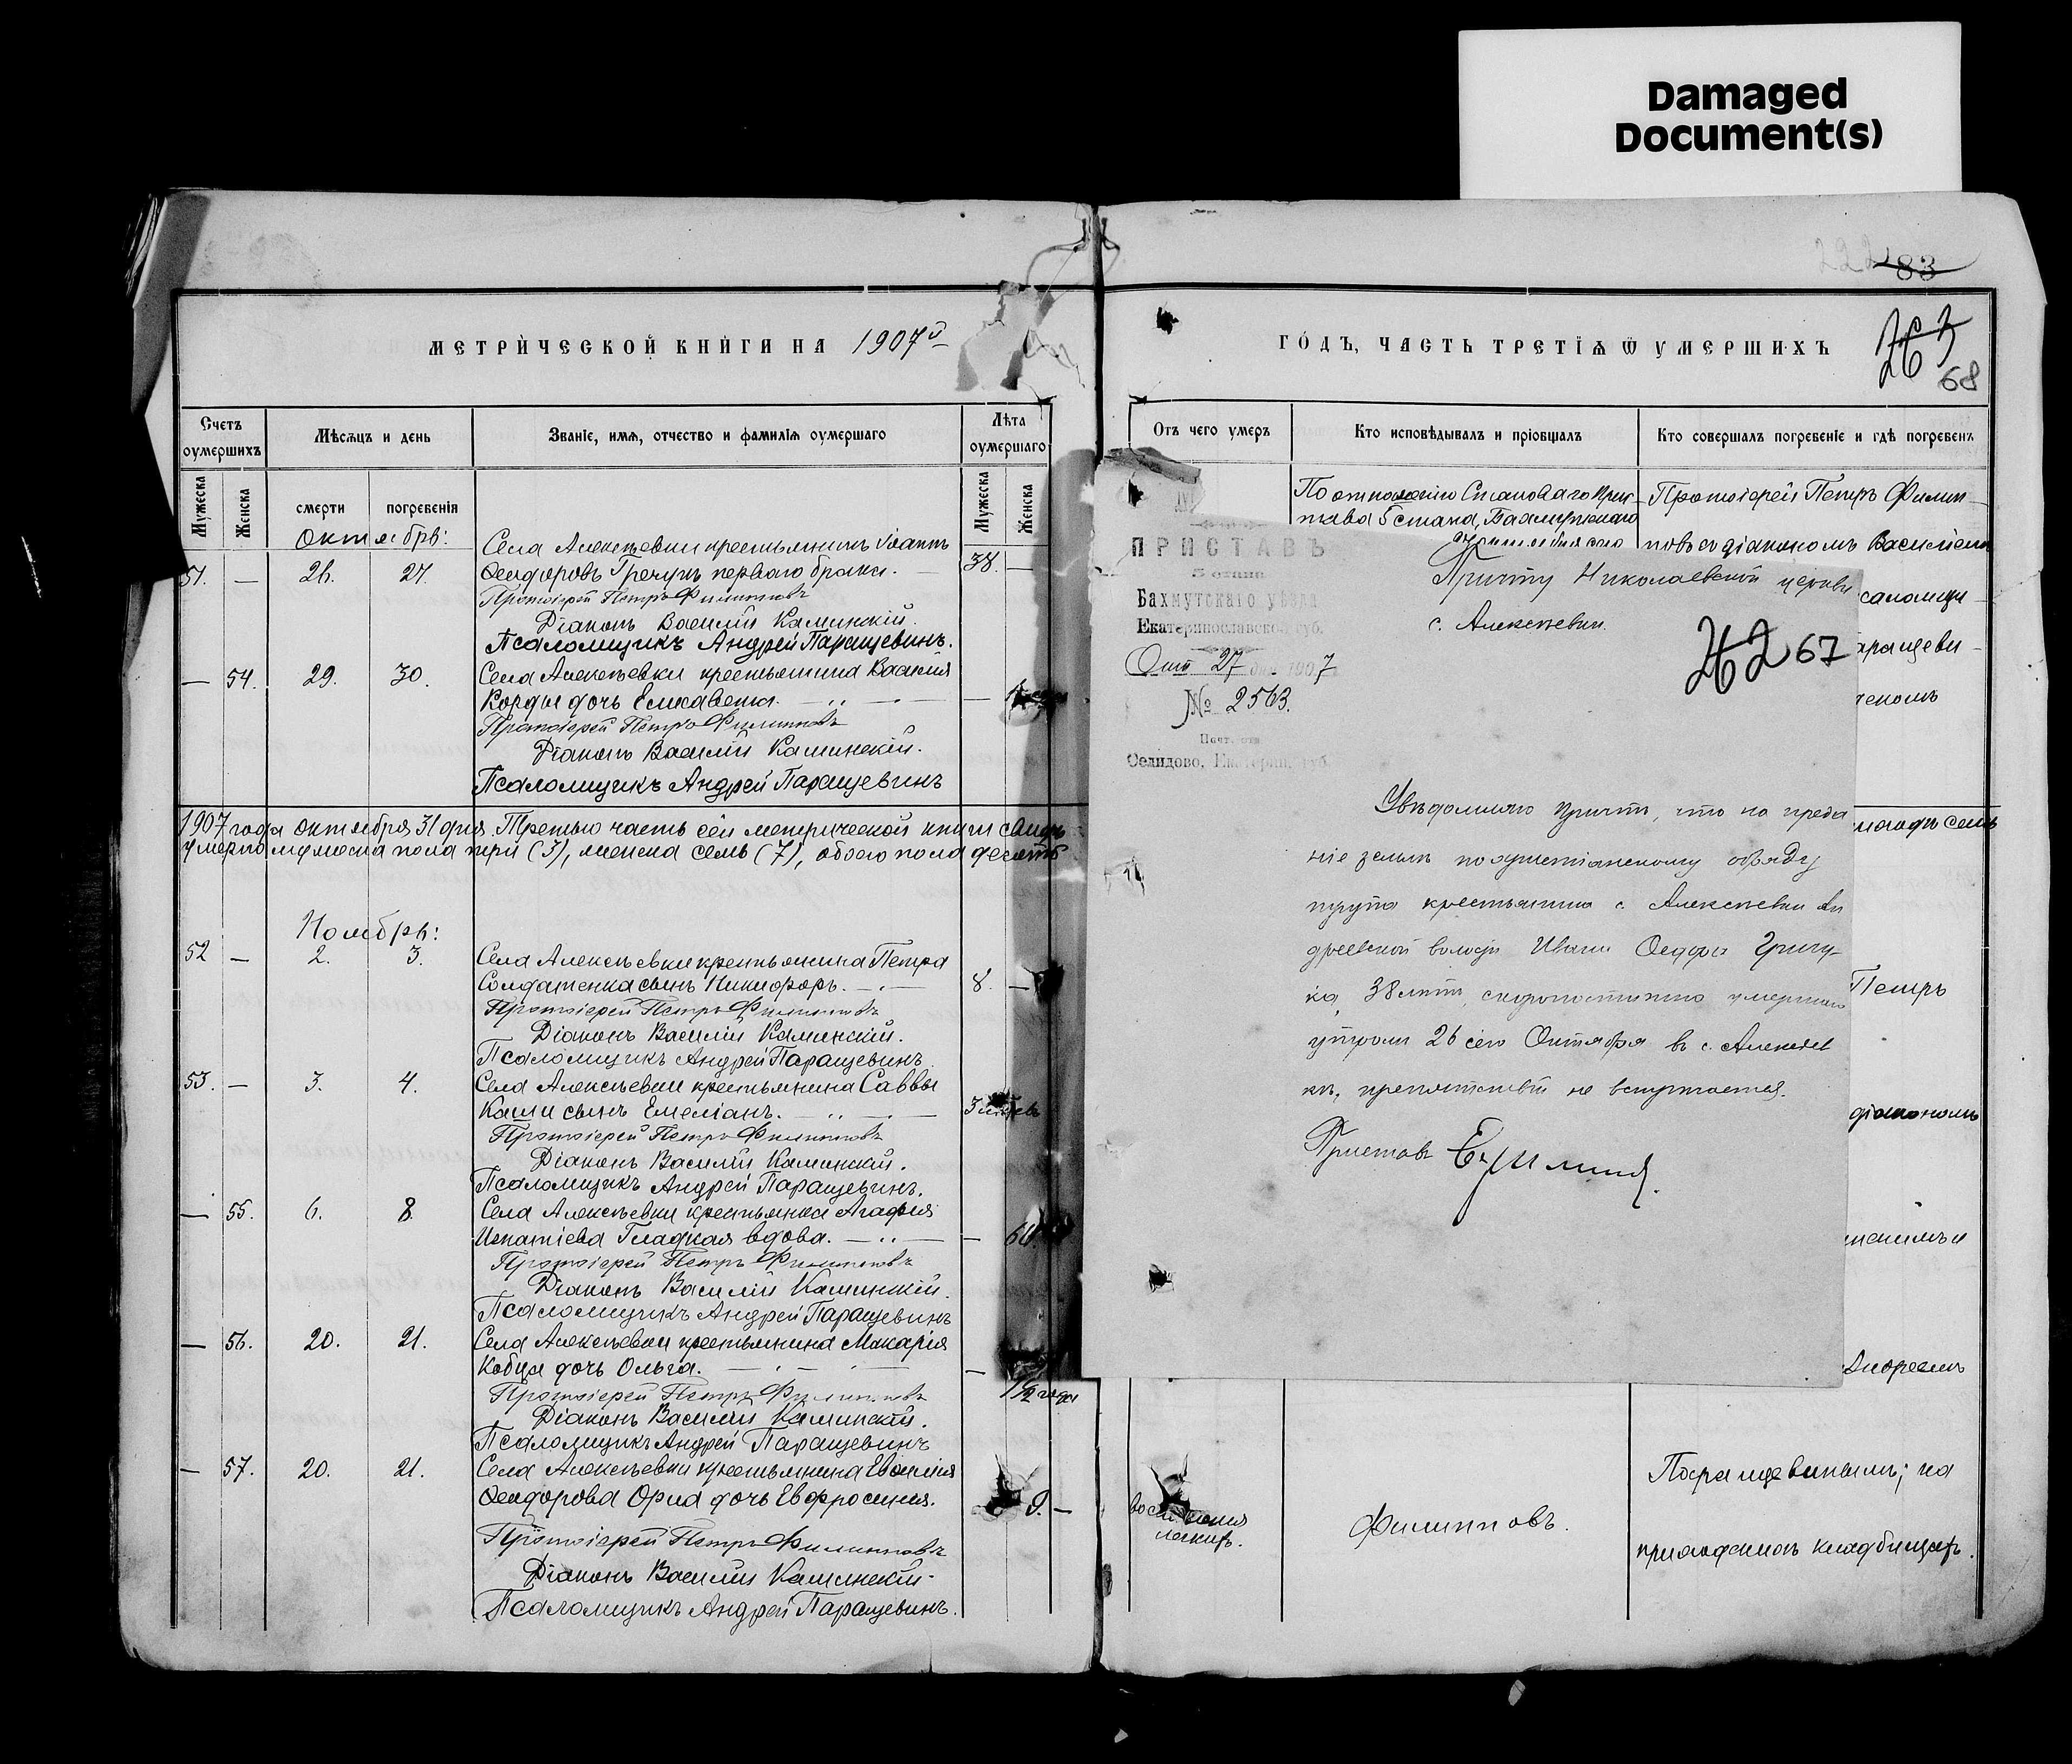 Damaged
Document(s)
83
МЕТРИЧЕСКОЙ КНИГИ НА 1907й
Счетъ
оумершихъ
Мѣсяцъ и день
Званіе, имя, отчество и фамилія оумершаго
Лѣта
оумершаго
Мужеска
Женска
смерти
погребенія
Мужеска
Женска
Октябрь:
51. — 26. 27. Села Алексѣевки крестьянинъ Іоаннъ
Ѳеодоровъ Гречукъ перваго брака. — 38. —
Протоіерей Петръ Филипповъ
Діаконъ Василій Каминскій.
Псаломщикъ Андрей Паращевинъ.
— 54. 29. 30. Села Алексѣевки крестьянина Василія
Корды дочь Елисавета. —
Протоіерей Петръ Филипповъ
Діаконъ Василій Каминскій.
Псаломщикъ Андрей Паращевинъ
1907 года октября 31 дня. Третью часть сей метрической книги свидѣ
умерло мужеска пола три (3), женска семь (7), обоего пола десять
Ноябрь:
52 — 2. 3. Села Алексѣевки крестьянина Петра
Солдатенка сынъ Никифоръ. — 8. —
Протоіерей Петръ Филипповъ
Діаконъ Василій Каминскій.
Псаломщикъ Андрей Паращевинъ
53. — 3. 4. Села Алексѣевки крестьянина Саввы
Каши сынъ Емеліанъ. — 3
Протоіерей Петръ Филипповъ
Діаконъ Василій Каминскій.
Псаломщикъ Андрей Паращевинъ.
— 55. 6. 8. Села Алексѣевки крестьянка Агафія
Игнатіева Гладкая вдова. —
Протоіерей Петръ Филипповъ
Діаконъ Василій Каминскій.
Псаломщикъ Андрей Паращевинъ
— 56. 20. 21. Села Алексѣевки крестьянина Макарія
Кобца дочь Ольга. — 1½ года
Протоіерей Петръ Филипповъ
Діаконъ Василій Каминскій.
Псаломщикъ Андрей Паращевинъ
— 57. 20. 21. Села Алексѣевки крестьянина
Ѳеодорова дочь Евфросинія. 9. —
Протоіерей Петръ Филипповъ
Діаконъ Василій Каминскій.
Псаломщикъ Андрей Паращевинъ.
ГОДЪ, ЧАСТЬ ТРЕТІЯ Ѿ УМЕРШИХЪ
263
68
Отъ чего умеръ
Кто исповѣдывалъ и пріобщалъ
Кто совершалъ погребеніе и гдѣ погребенъ
По отношенію Становаго При-
става 5 стана, Бахмутскаго
Протоіерей Петръ Филип-
повъ съ діакономъ Василіемъ
саломщи-
аращеви-
Петръ
діакономъ
Андреемъ
ПРИСТАВЪ
5 стана
Бахмутскаго уѣзда
Екатеринославской губ.
Окт 27 дня 1907
№ 2563.
Почт. отд.
Селидово, Екатерин. губ.
Причту Николаевской церкви
с. Алексѣевки.
262 67
Увѣдомляю причтъ, что на преда
ніе землѣ по христіанскому обряду
трупа крестьянина с. Алексѣевки Ан
дреевской волости Ивана Ѳедора
ка, 38 лѣтъ, скоропостижно умершаго
утромъ 26 сего Октября въ с. Алексѣев
кѣ, препятствій не встрѣчается.
Приставъ
воспаленія
легкихъ.
Филипповъ.
Паращевинымъ; на
приходскомъ кладбищѣ.